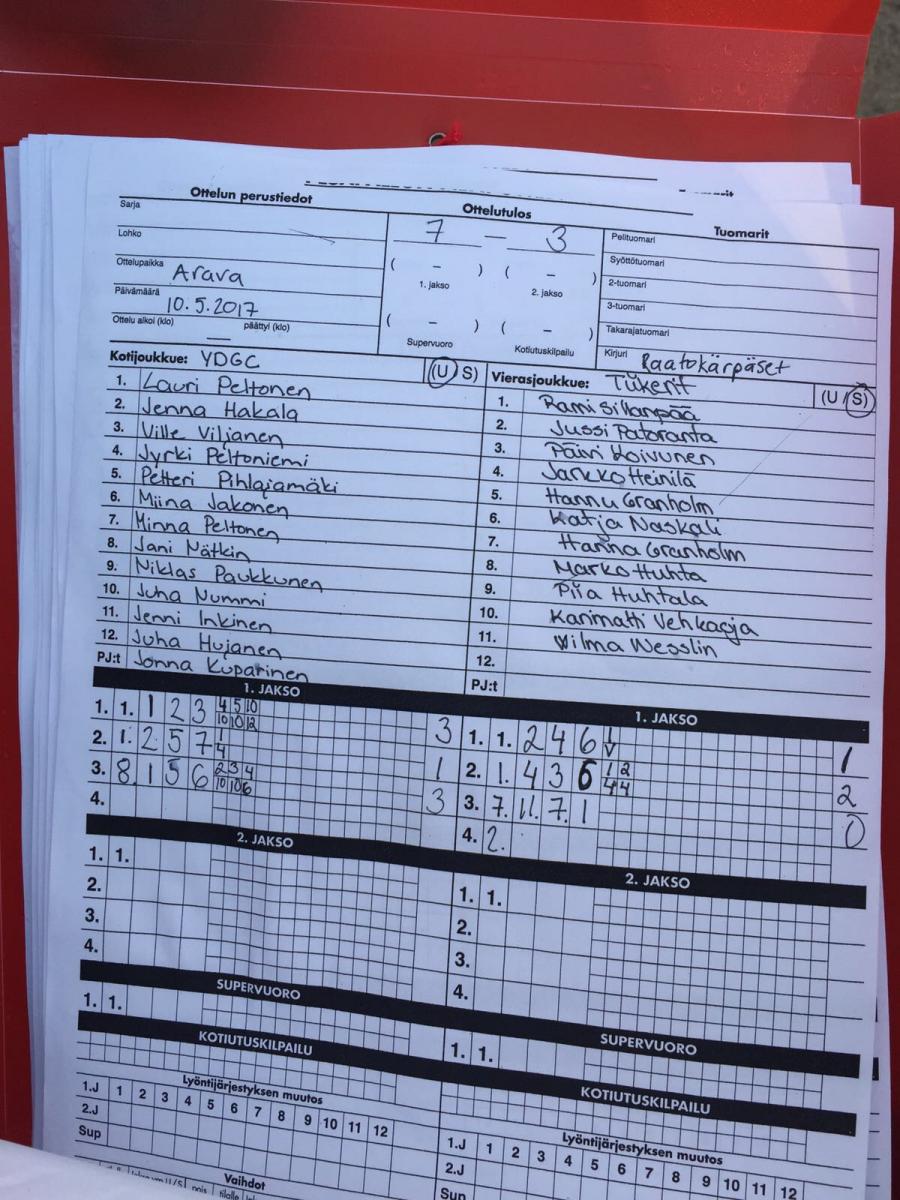 Ottelun perustiedot
Sarja
Lohko
Ottelupaikka Arava
Päivämäärä 10.5.2017
Ottelu alkoi (klo) päättyi (klo)
Ottelutulos
7 – 3
( – ) ( – )
1. jakso 2. jakso
( – ) ( – )
Supervuoro Kotiutuskilpailu
Tuomarit
Pelituomari
Syöttötuomari
2-tuomari
3-tuomari
Takarajatuomari
Kirjuri Raatokärpäset
Kotijoukkue: YDGC (U S)
1. Lauri Peltonen
2. Jenna Hakala
3. Ville Viljanen
4. Jyrki Peltoniemi
5. Petteri Pihlajamäki
6. Miina Jakonen
7. Minna Peltonen
8. Jani Mätkin
9. Niklas Paukkunen
10. Juha Nummi
11. Jenni Inkinen
12. Juha Hujanen
PJ:t Jonna Kuparinen
Vierasjoukkue: Tiikerit (U / S)
1. Rami Sillanpää
2. Jussi Patoranta
3. Päivi Koivunen
4. Jarkko Heinilä
5. Hannu Granholm
6. Katja Naskali
7. Hanna Granholm
8. Marko Huhta
9. Piia Huhtala
10. Karimatti Vehkaoja
11. Wilma Wesslin
12.
PJ:t
1. JAKSO
1. 1. 1 2 3 4 5 10 3
10 10 12
2. 1. 2 5 7 1 1
4
3. 8. 1 5 6 2 3 4 3
10 10 6
4.
1. JAKSO
1. 1. 2 4 6 1 1
2. 1. 4 3 6 1 2 2
4 4
3. 7. 11. 7. 1 0
4. 2.
2. JAKSO
1. 1.
2.
3.
4.
2. JAKSO
1. 1.
2.
3.
4.
SUPERVUORO
1. 1.
KOTIUTUSKILPAILU
SUPERVUORO
1. 1.
KOTIUTUSKILPAILU
Lyöntijärjestyksen muutos
1.J 1 2 3 4 5 6 7 8 9 10 11 12
2.J
Sup
Vaihdot
Lyöntijärjestyksen muutos
1.J 1 2 3 4 5 6 7 8 9 10 11 12
2.J
Sup